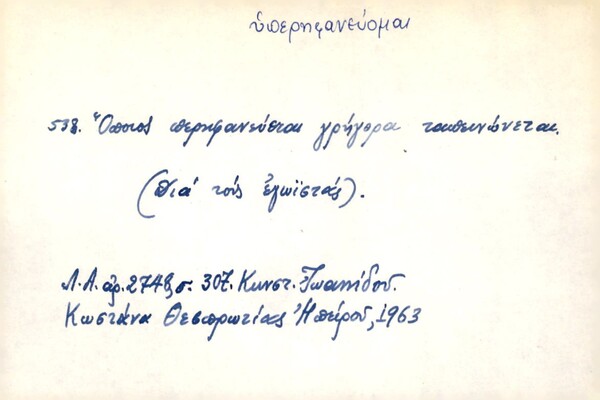 ὑπερηφανεύομαι
538. Ὅποιος περηφανεύεται γρήγορα ταπεινώνεται.
(Διά τούς ἐγωϊστάς).
Λ.Α. ἀρ. 2748, σ. 307. Κωνστ. Ἰωαννίδου.
Κωστάνα Θεσπρωτίας Ἠπείρου, 1963